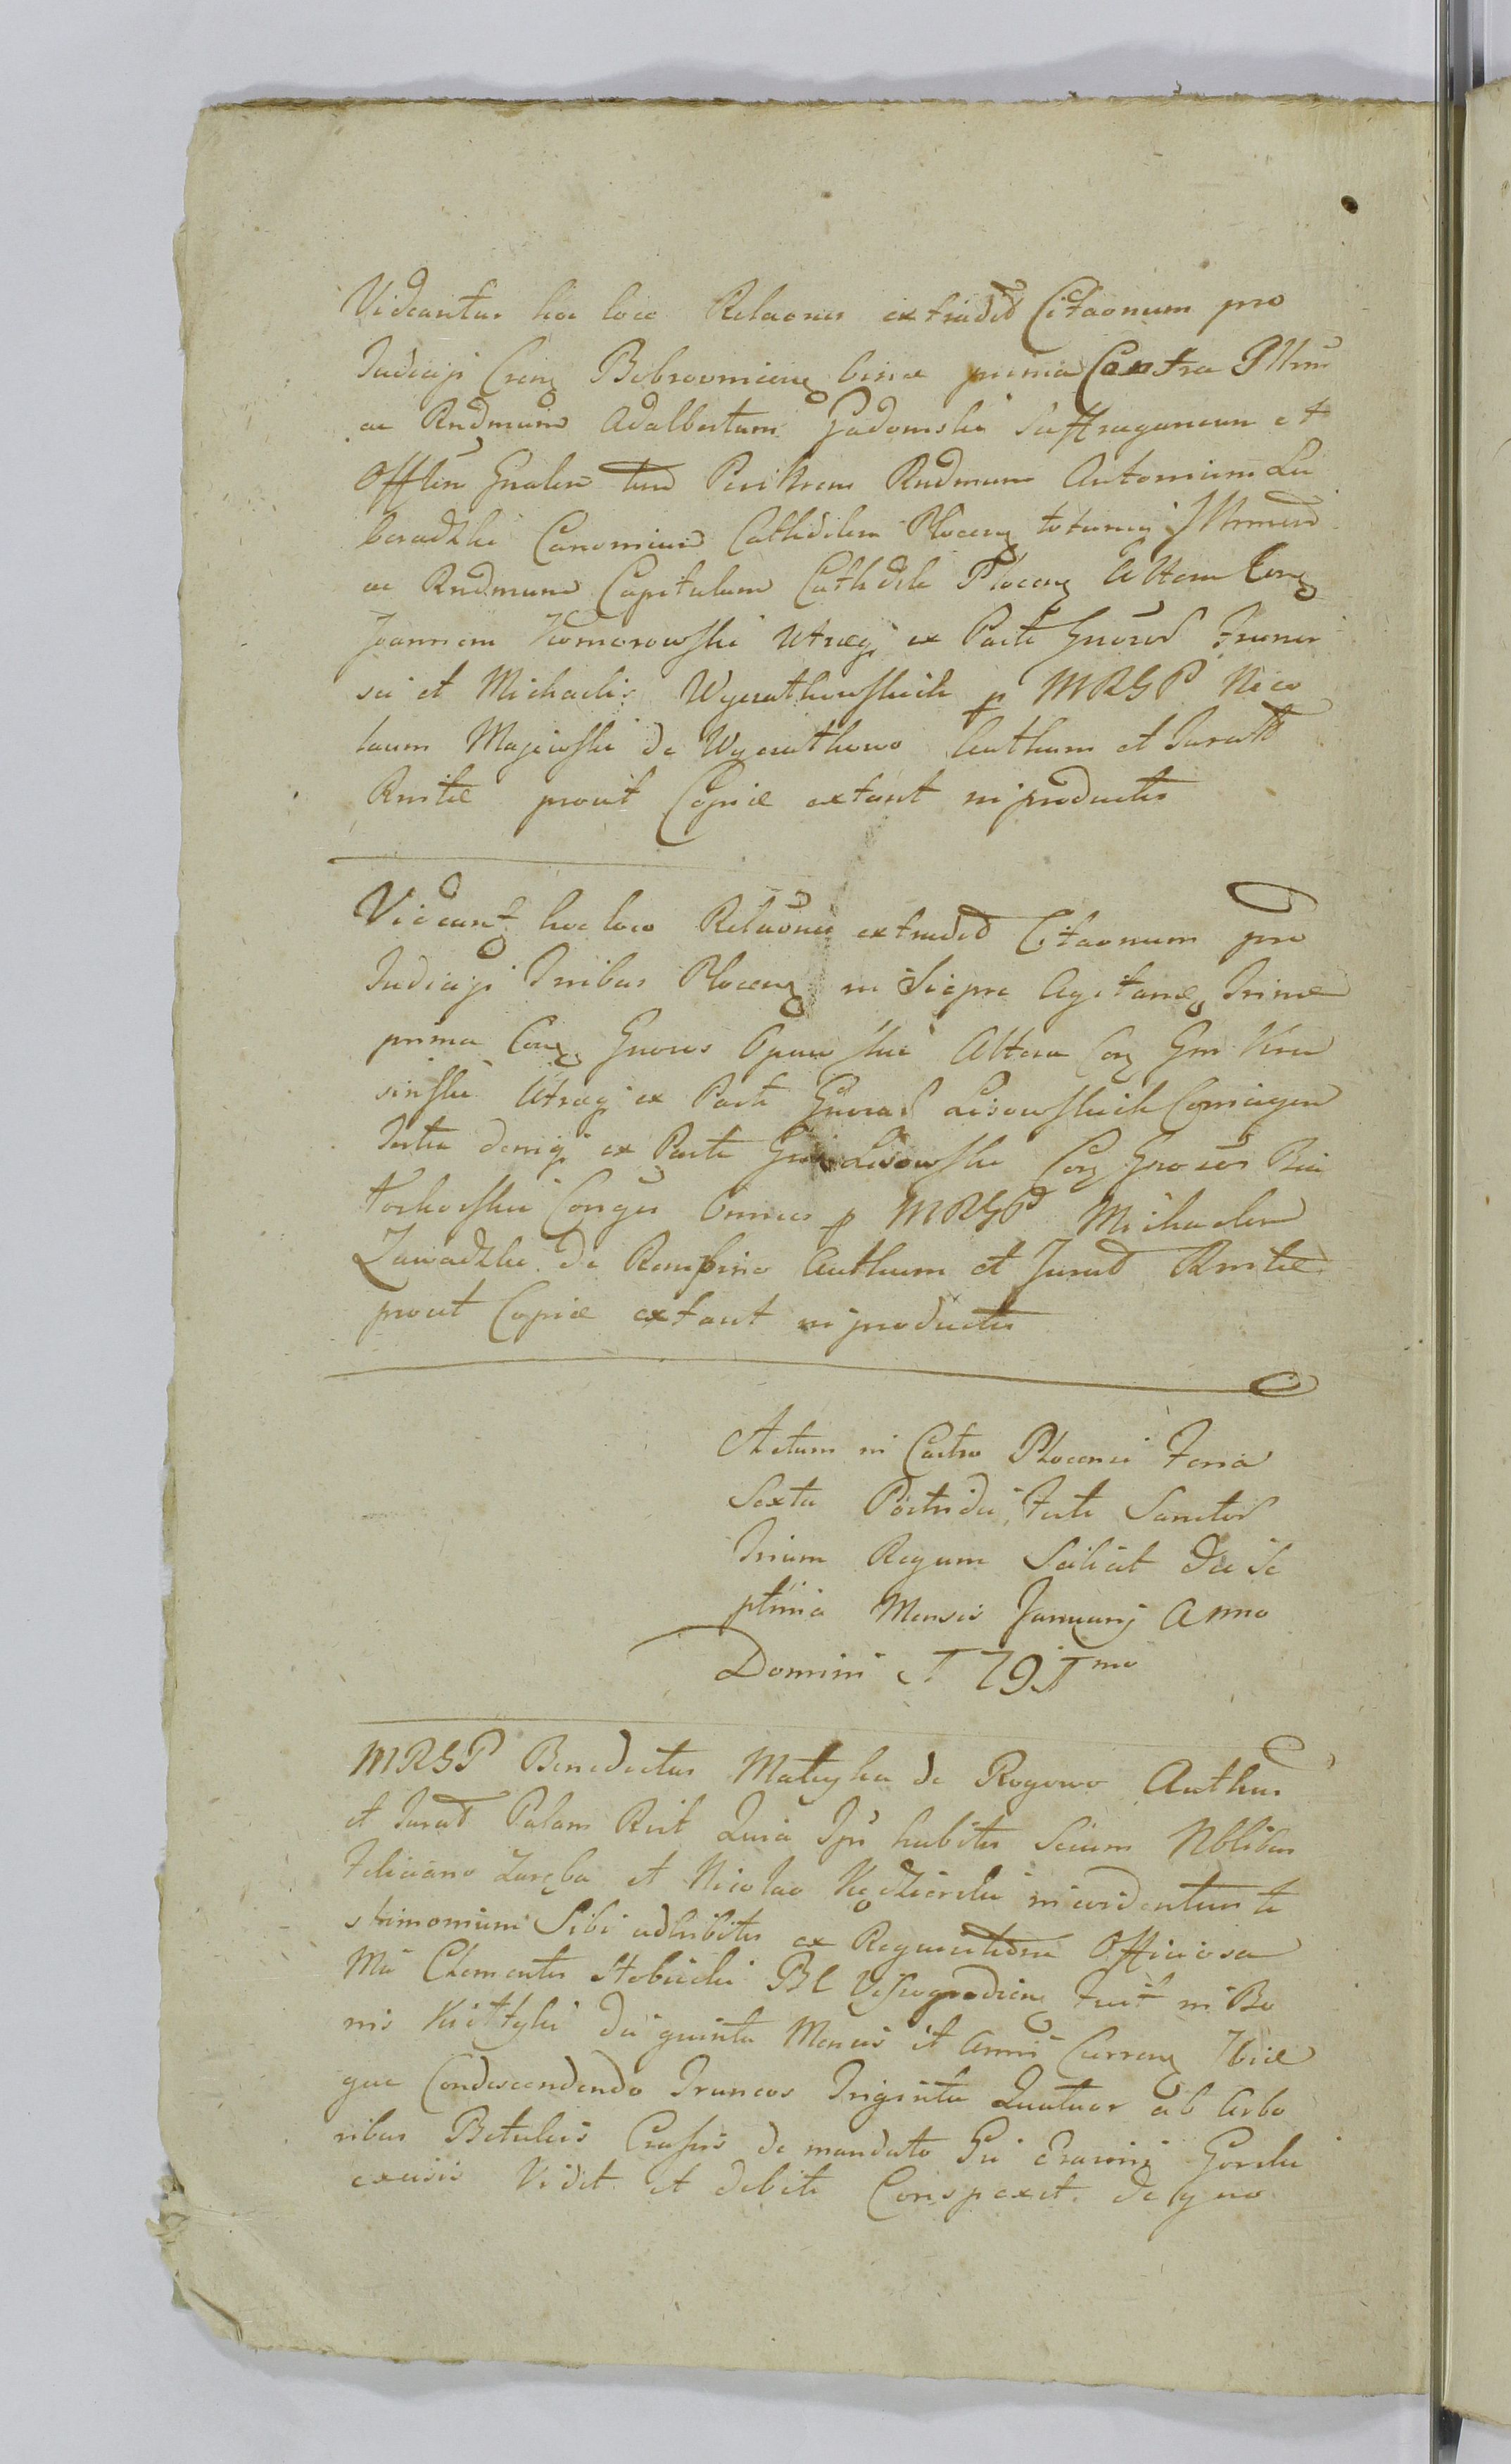 Videantur hoc loco Relaones extradit Citaonum pro
Judicijs Crens Bobrownicens binæ prima Contra Illrm
ac Rndmum Adalbertum Gadomski Suffraganeum et
Offlem Gnalem tum Perillrem Rndmum Antonium Lu
beradzki Canonicum Cathedlem Plocens totumq Illrmum
ac Rndmum Capitulum Cathdle Plocens Altera Cons
Joannem Komorowski Utraq ex Parte Gnosor Franci
sci et Michaelis Wyczalkowskich p MRGP Nico
laum Majewski de Wyczalkowo Authum et Jurat
Rnitæ prout Copiæ extant in productis
Videant hoc loco Relaones extradit Citaonum pro
Judicijs Trribus Plocens in Sierpc Agitans Trinæ
prima Cons Gnosos Opawskie Altera Cons Gnm Kra
sinski Utraq ex Parte Gnosor Lisowskich Coniugum
Tertia deniq ex Parte Gni Lisowski Cons Gnosos Bia
Conges Omnes p MRGP Michaelem
Zawadzki de Rempino Authum et Jurat Rnitæ
prout Copiæ extant in productis
Actum in Castro Plocensi Feria
Sexta Postridie Festi Sanctor
Trium Regum Scilicet die Se
ptima Mensis Januarij Anno
Domini 1791mo
MRGP Benedictus Mateyka de Rogowo Authus
et Jurat Palam Rcit Quia Ipse habitis Secum Nblibus
Feliciano Zaręba et Nicolao Kędzierski in evidentius te
stimonium Sibi adhibitis ex Requisitione Officiosa
Mci Clementis BC Vissogrodiens fuit in Bo
nis die quinta Mensis et Anni Currens Ibiq
que Condescendendo Truncos Triginta Quatuor ab Arbo
ribus Betuleis Crassis de mandato Gni Erasmi Gorski
excisis Vidit et debite Conspexit de quo